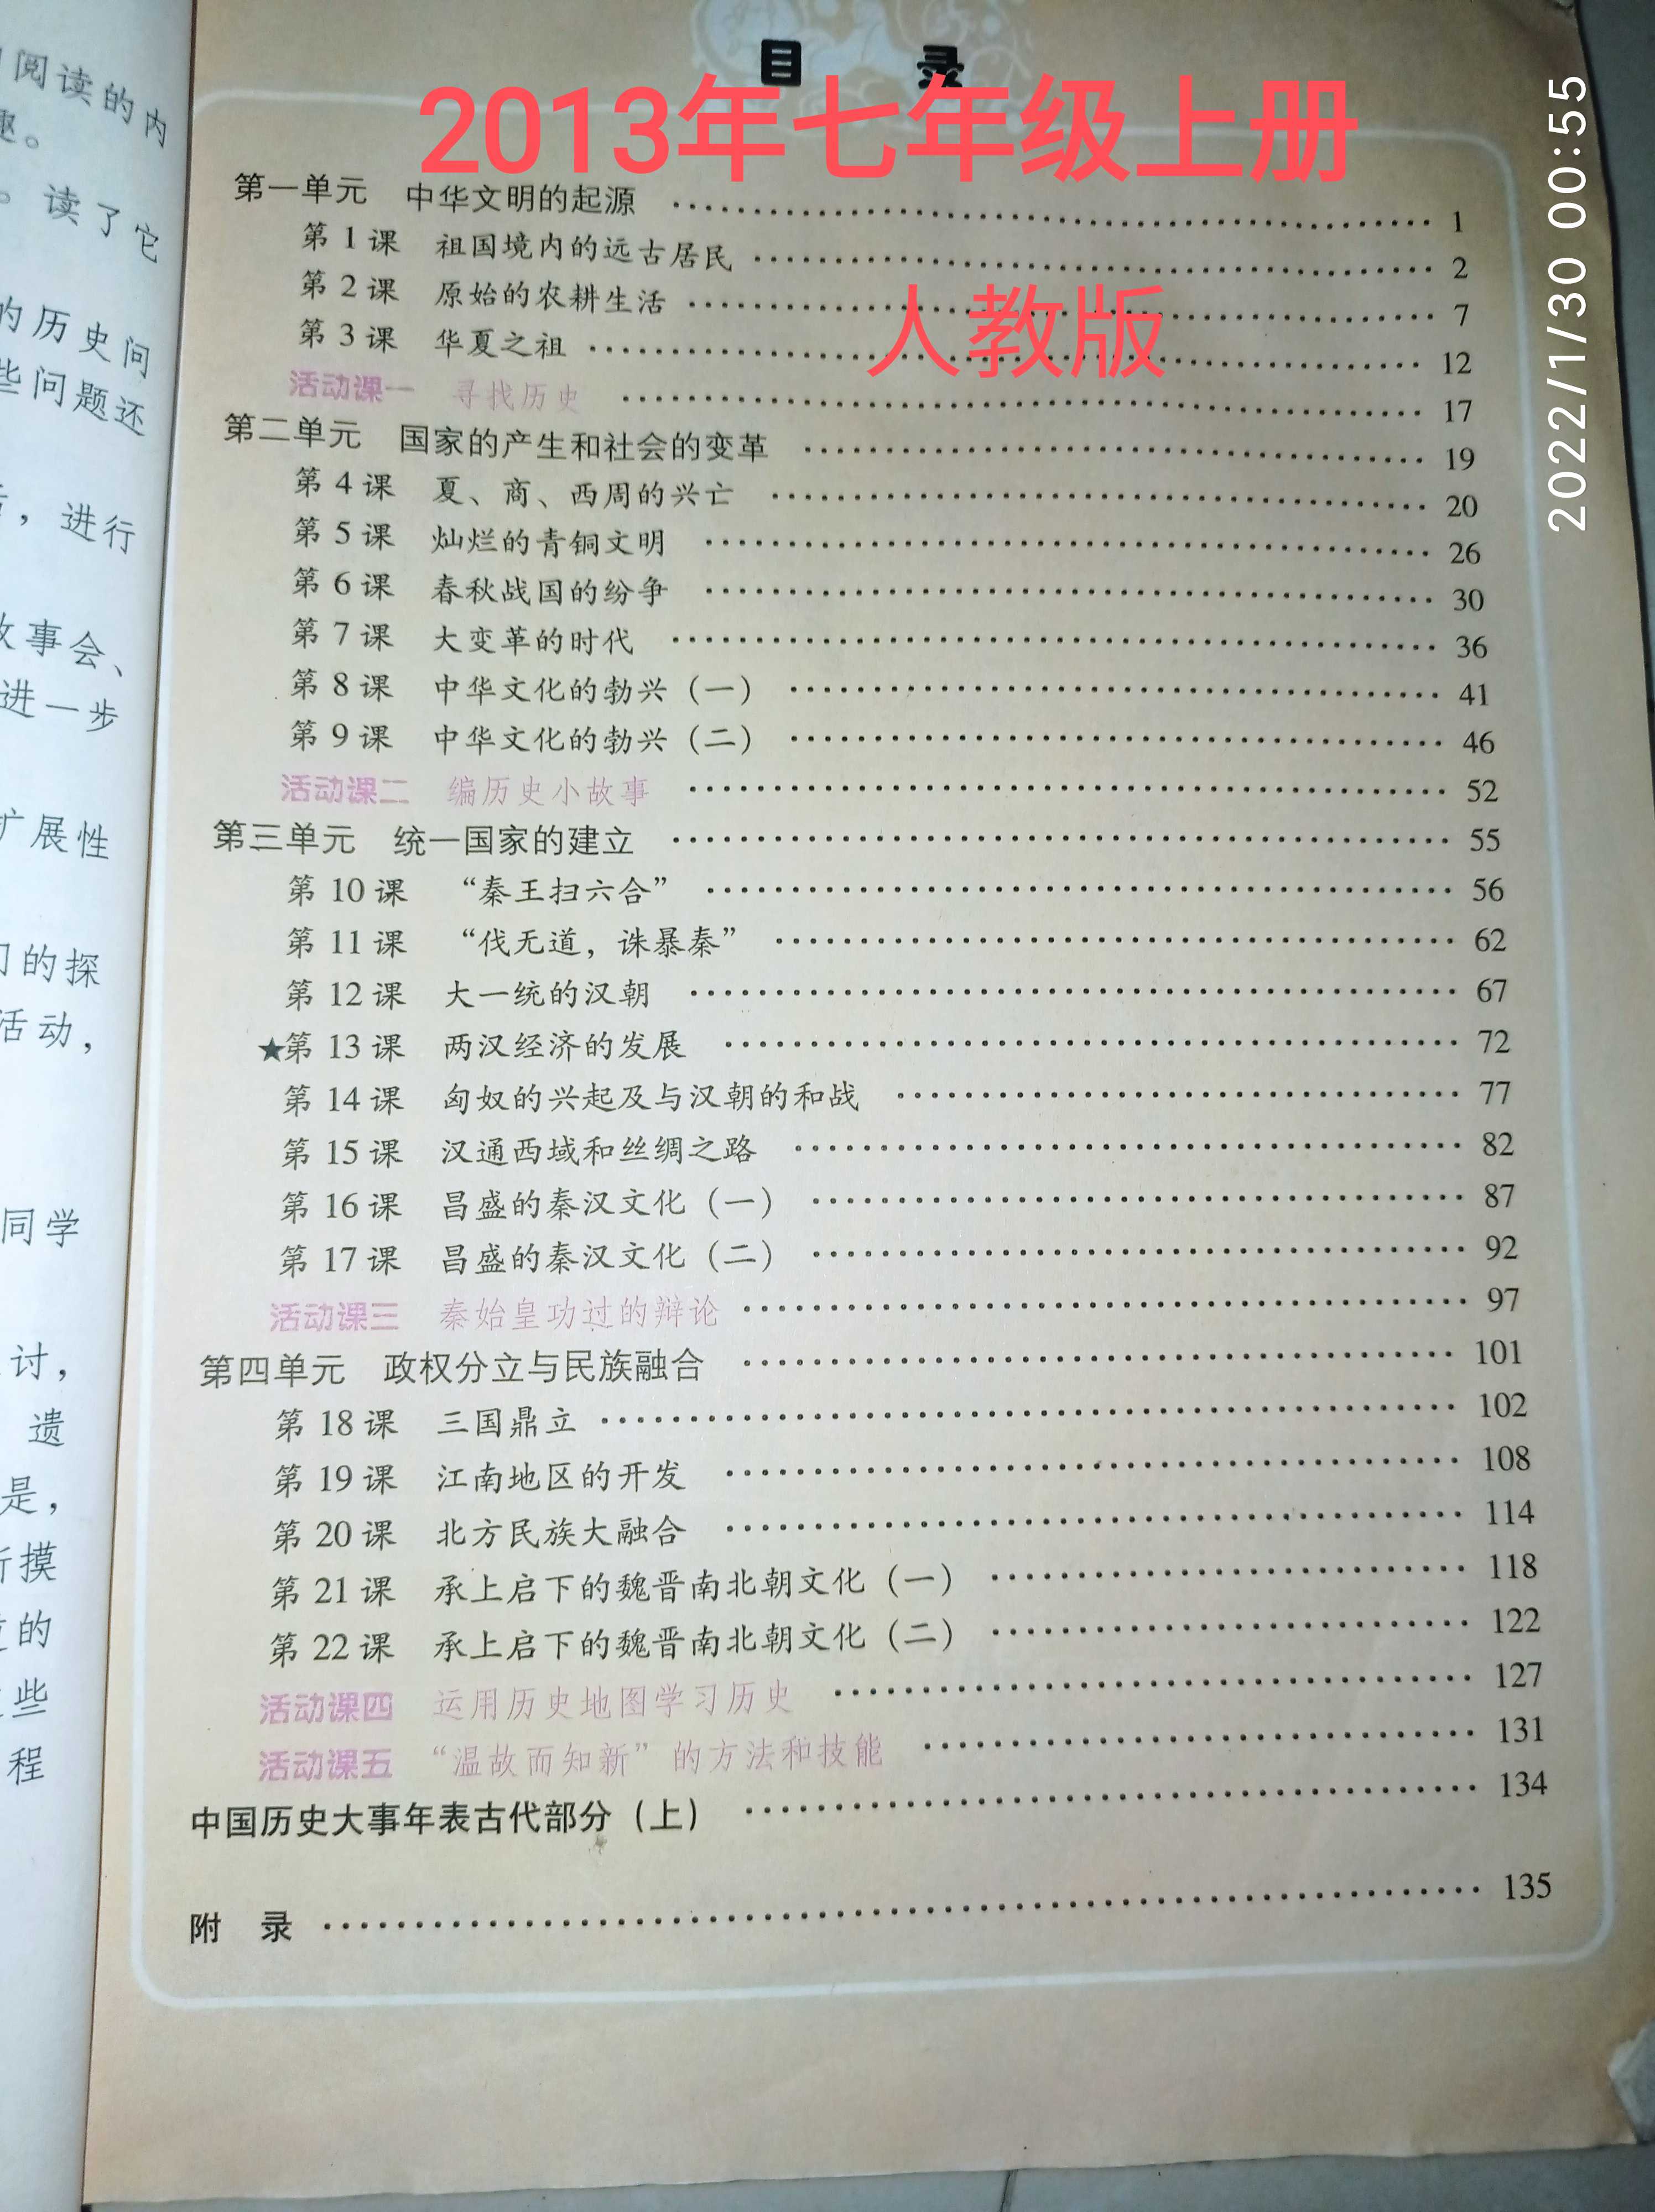 目 录
2013年七年级上册
人教版
2022/1/30 00:55
第一单元 中华文明的起源 1
第 1 课 祖国境内的远古居民 2
第 2 课 原始的农耕生活 7
第 3 课 华夏之祖 12
活动课一 寻找历史 17
第二单元 国家的产生和社会的变革 19
第 4 课 夏、商、西周的兴亡 20
第 5 课 灿烂的青铜文明 26
第 6 课 春秋战国的纷争 30
第 7 课 大变革的时代 36
第 8 课 中华文化的勃兴（一） 41
第 9 课 中华文化的勃兴（二） 46
活动课二 编历史小故事 52
第三单元 统一国家的建立 55
第 10 课 “秦王扫六合” 56
第 11 课 “伐无道，诛暴秦” 62
第 12 课 大一统的汉朝 67
★第 13 课 两汉经济的发展 72
第 14 课 匈奴的兴起及与汉朝的和战 77
第 15 课 汉通西域和丝绸之路 82
第 16 课 昌盛的秦汉文化（一） 87
第 17 课 昌盛的秦汉文化（二） 92
活动课三 秦始皇功过的辩论 97
第四单元 政权分立与民族融合 101
第 18 课 三国鼎立 102
第 19 课 江南地区的开发 108
第 20 课 北方民族大融合 114
第 21 课 承上启下的魏晋南北朝文化（一） 118
第 22 课 承上启下的魏晋南北朝文化（二） 122
活动课四 运用历史地图学习历史 127
活动课五 “温故而知新”的方法和技能 131
中国历史大事年表古代部分（上） 134
附 录 135
阅读的内
。读了它
的历史问
些问题还
，进行
故事会、
进一步
扩展性
的探
活动，
同学
讨，
遗
是，
摸
的
些
程